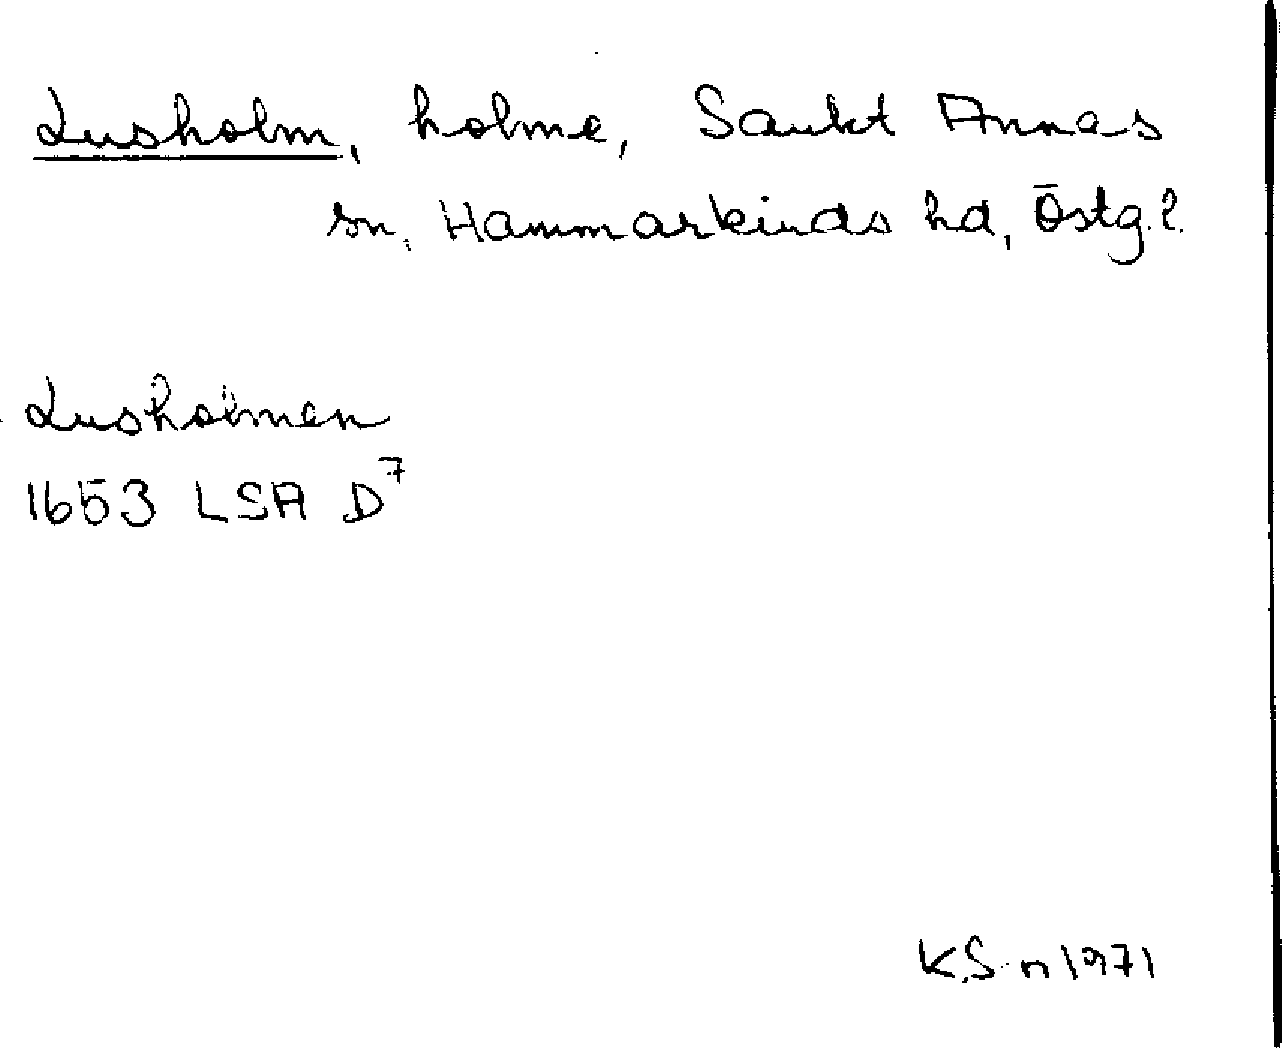 Lusholm, holme, Sankt Annas
sn, Hammarkinds hd, Östg.l.
Lusholmen
1653 LSA D7
K.S-n 1971